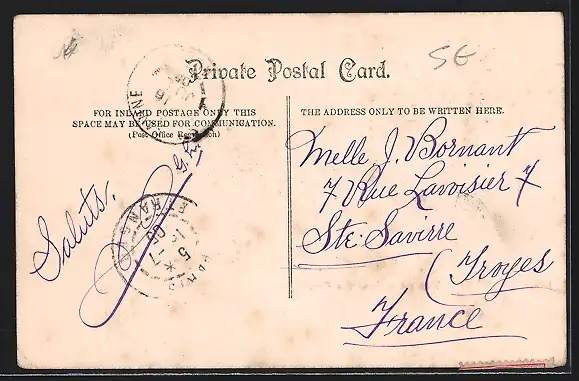 SG
Private Postal Card.
FOR INLAND POSTAGE ONLY THIS
SPACE MAY BE USED FOR COMMUNICATION.
(Post Office Regulation)
THE ADDRESS ONLY TO BE WRITTEN HERE.
Saluts.
Melle J. Bornant
7 Rue Lavoisier 7
Ste. Savirre
(Troyes
France